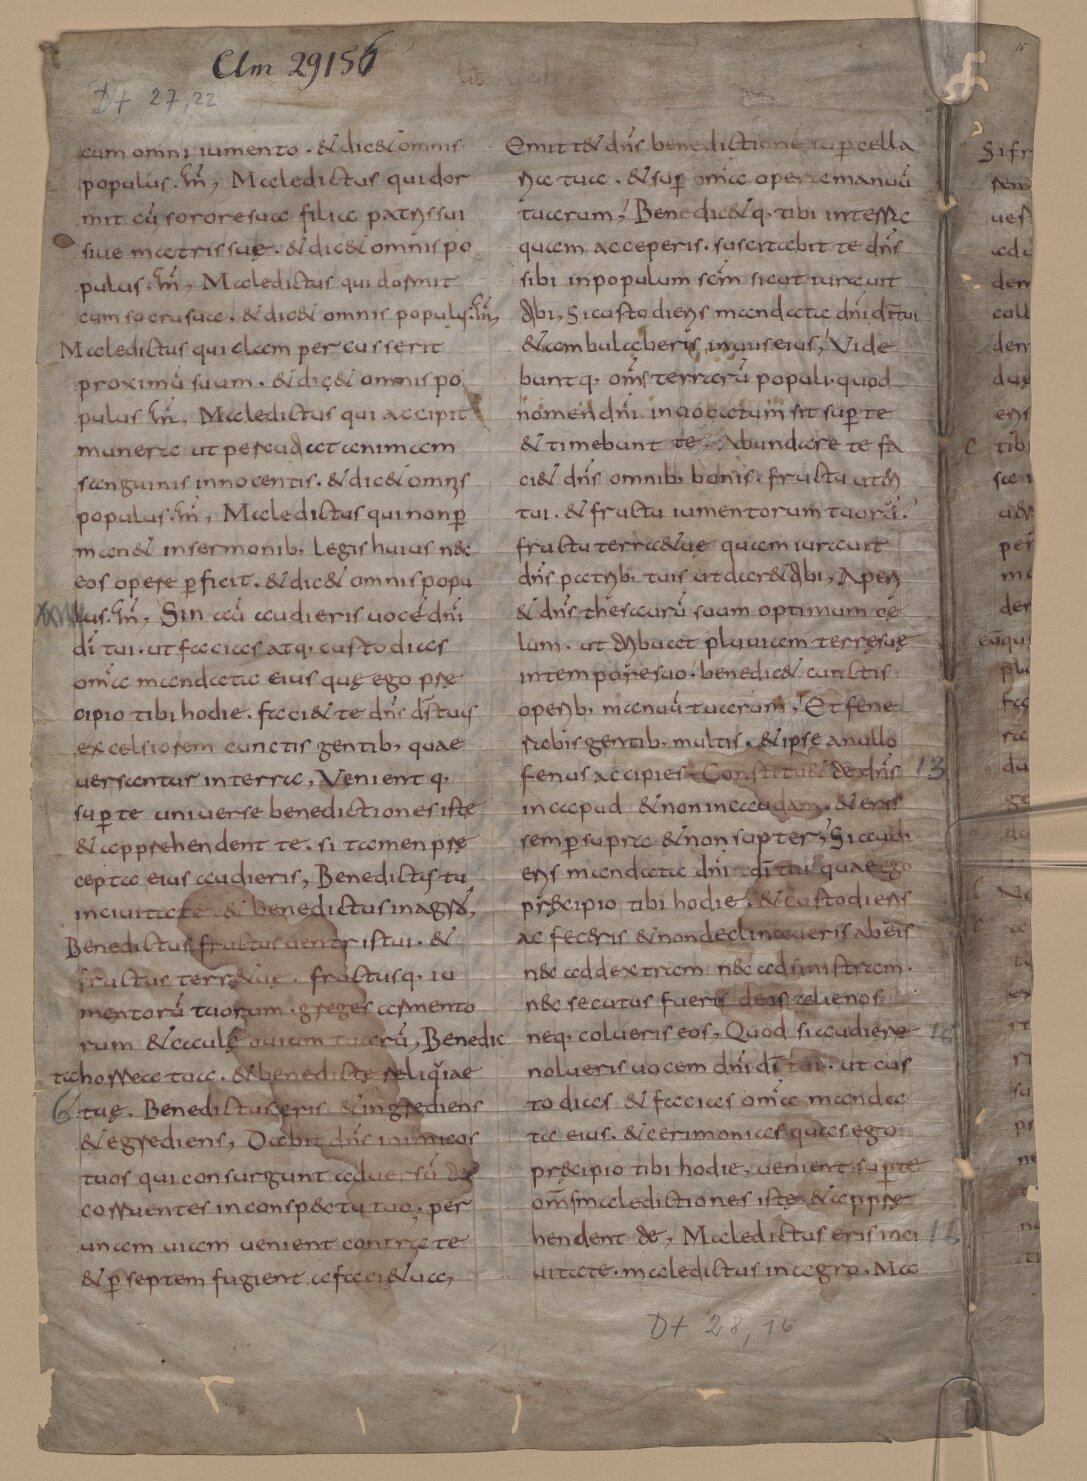 Clm 29156
Dt 27,22
cum omni iumento . & dic& omnis
populus . am̄, Maledictus qui dor
mit cū sorore sua filia patris sui
siue matris suę . & dic& omnis po
pulus . am̄, Maledictus qui dormit
cum socru sua . & dic& omnis populus . am̄,
Maledictus qui clam percusserit
proximū suum . & dic& omnis po
pulus am̄, Maledictus qui accipit
munera ut percutiat animam
sanguinis innocentis . & dic& omnis
populus . am̄, Maledictus qui non p̄
man& in sermonib; legis huius nec
eos opere p̄ficit . & dic& omnis popu
lus . am̄, Sin aū audieris uocē dn̄i
dī tui . ut facias atq; custodias
om̄ia mandata eius quę ego prę
cipio tibi hodie . faci& te dn̄s ds̄ tuus
excelsiorem cunctis gentib; quae
uersantur in terra, Venient q;
sup̄ te uniuerse benedictiones istę
& apprehendent te . si tamen prę
cepta eius audieris, Benedictus tu
in ciuitate & benedictus in agro,
Benedictus fructus uentris tui . &
fructus terrę tuę . fructusq; iu
mentorū tuorum . greges armento
rum & caulę ouium tuarū, Benedic
ta horrea tua . & benedictę reliquiae
6 tuę . Benedictus eris & ingrediens
& egrediens, Dabit dn̄s inimicos
tuos qui consurgunt aduersū te
corruentes in conspectu tuo . per
unam uiam uenient contra te
& p̄ septem fugient a facie tua,
Emitt& dn̄s benedictionē sup̄ cella
ria tua . & sup̄ om̄ia opera manuū
tuarum, Benedic& q; tibi in terra
quam acceperis . suscitabit te dn̄s
sibi in populum scm̄ sicut iurauit
tibi, Si custodieris mandata dn̄i dī tui
& ambulaberis in uiis eius, Vide
bunt q; om̄s terrarū populi . quod
nomen dn̄i inuocatum sit sup̄ te
& timebunt te, Abundare te fa
ci& dn̄s omnib; bonis . fructu uteri
tui . & fructu iumentorum tuorū .
fructu terrae tuę quam iurauit
dn̄s patrib; tuis ut dar& tibi, Aperi
& dn̄s thesaurū suum optimum cę
lum . ut tribuat pluuiam terrę tuę
in tempore suo . benedic& cunctis
operib; manuū tuarum, Et fene
rabis gentib; multis . & ipse a nullo
fenus accipies, Constitu& te dn̄s 13
in caput & non in caudam . & eris
semp̄ supra & non supter, Si audi
eris mandata dn̄i dī tui quae ego
pręcipio tibi hodie . & custodieris
ac feceris & non declinaueris ab eis
nec ad dextram nec ad sinistram .
nec secutus fueris deos alienos
neq; colueris eos, Quod si audire 15
nolueris uocem dn̄i dī tui . ut cus
todias & facias om̄ia manda
ta eius . & cerimonias quas ego
pręcipio tibi hodie, uenient sup̄ te
om̄s maledictiones istę & apprę
hendent te, Maledictus eris in ci 16
uitate . maledictus in agro . Ma
Dt 28,16